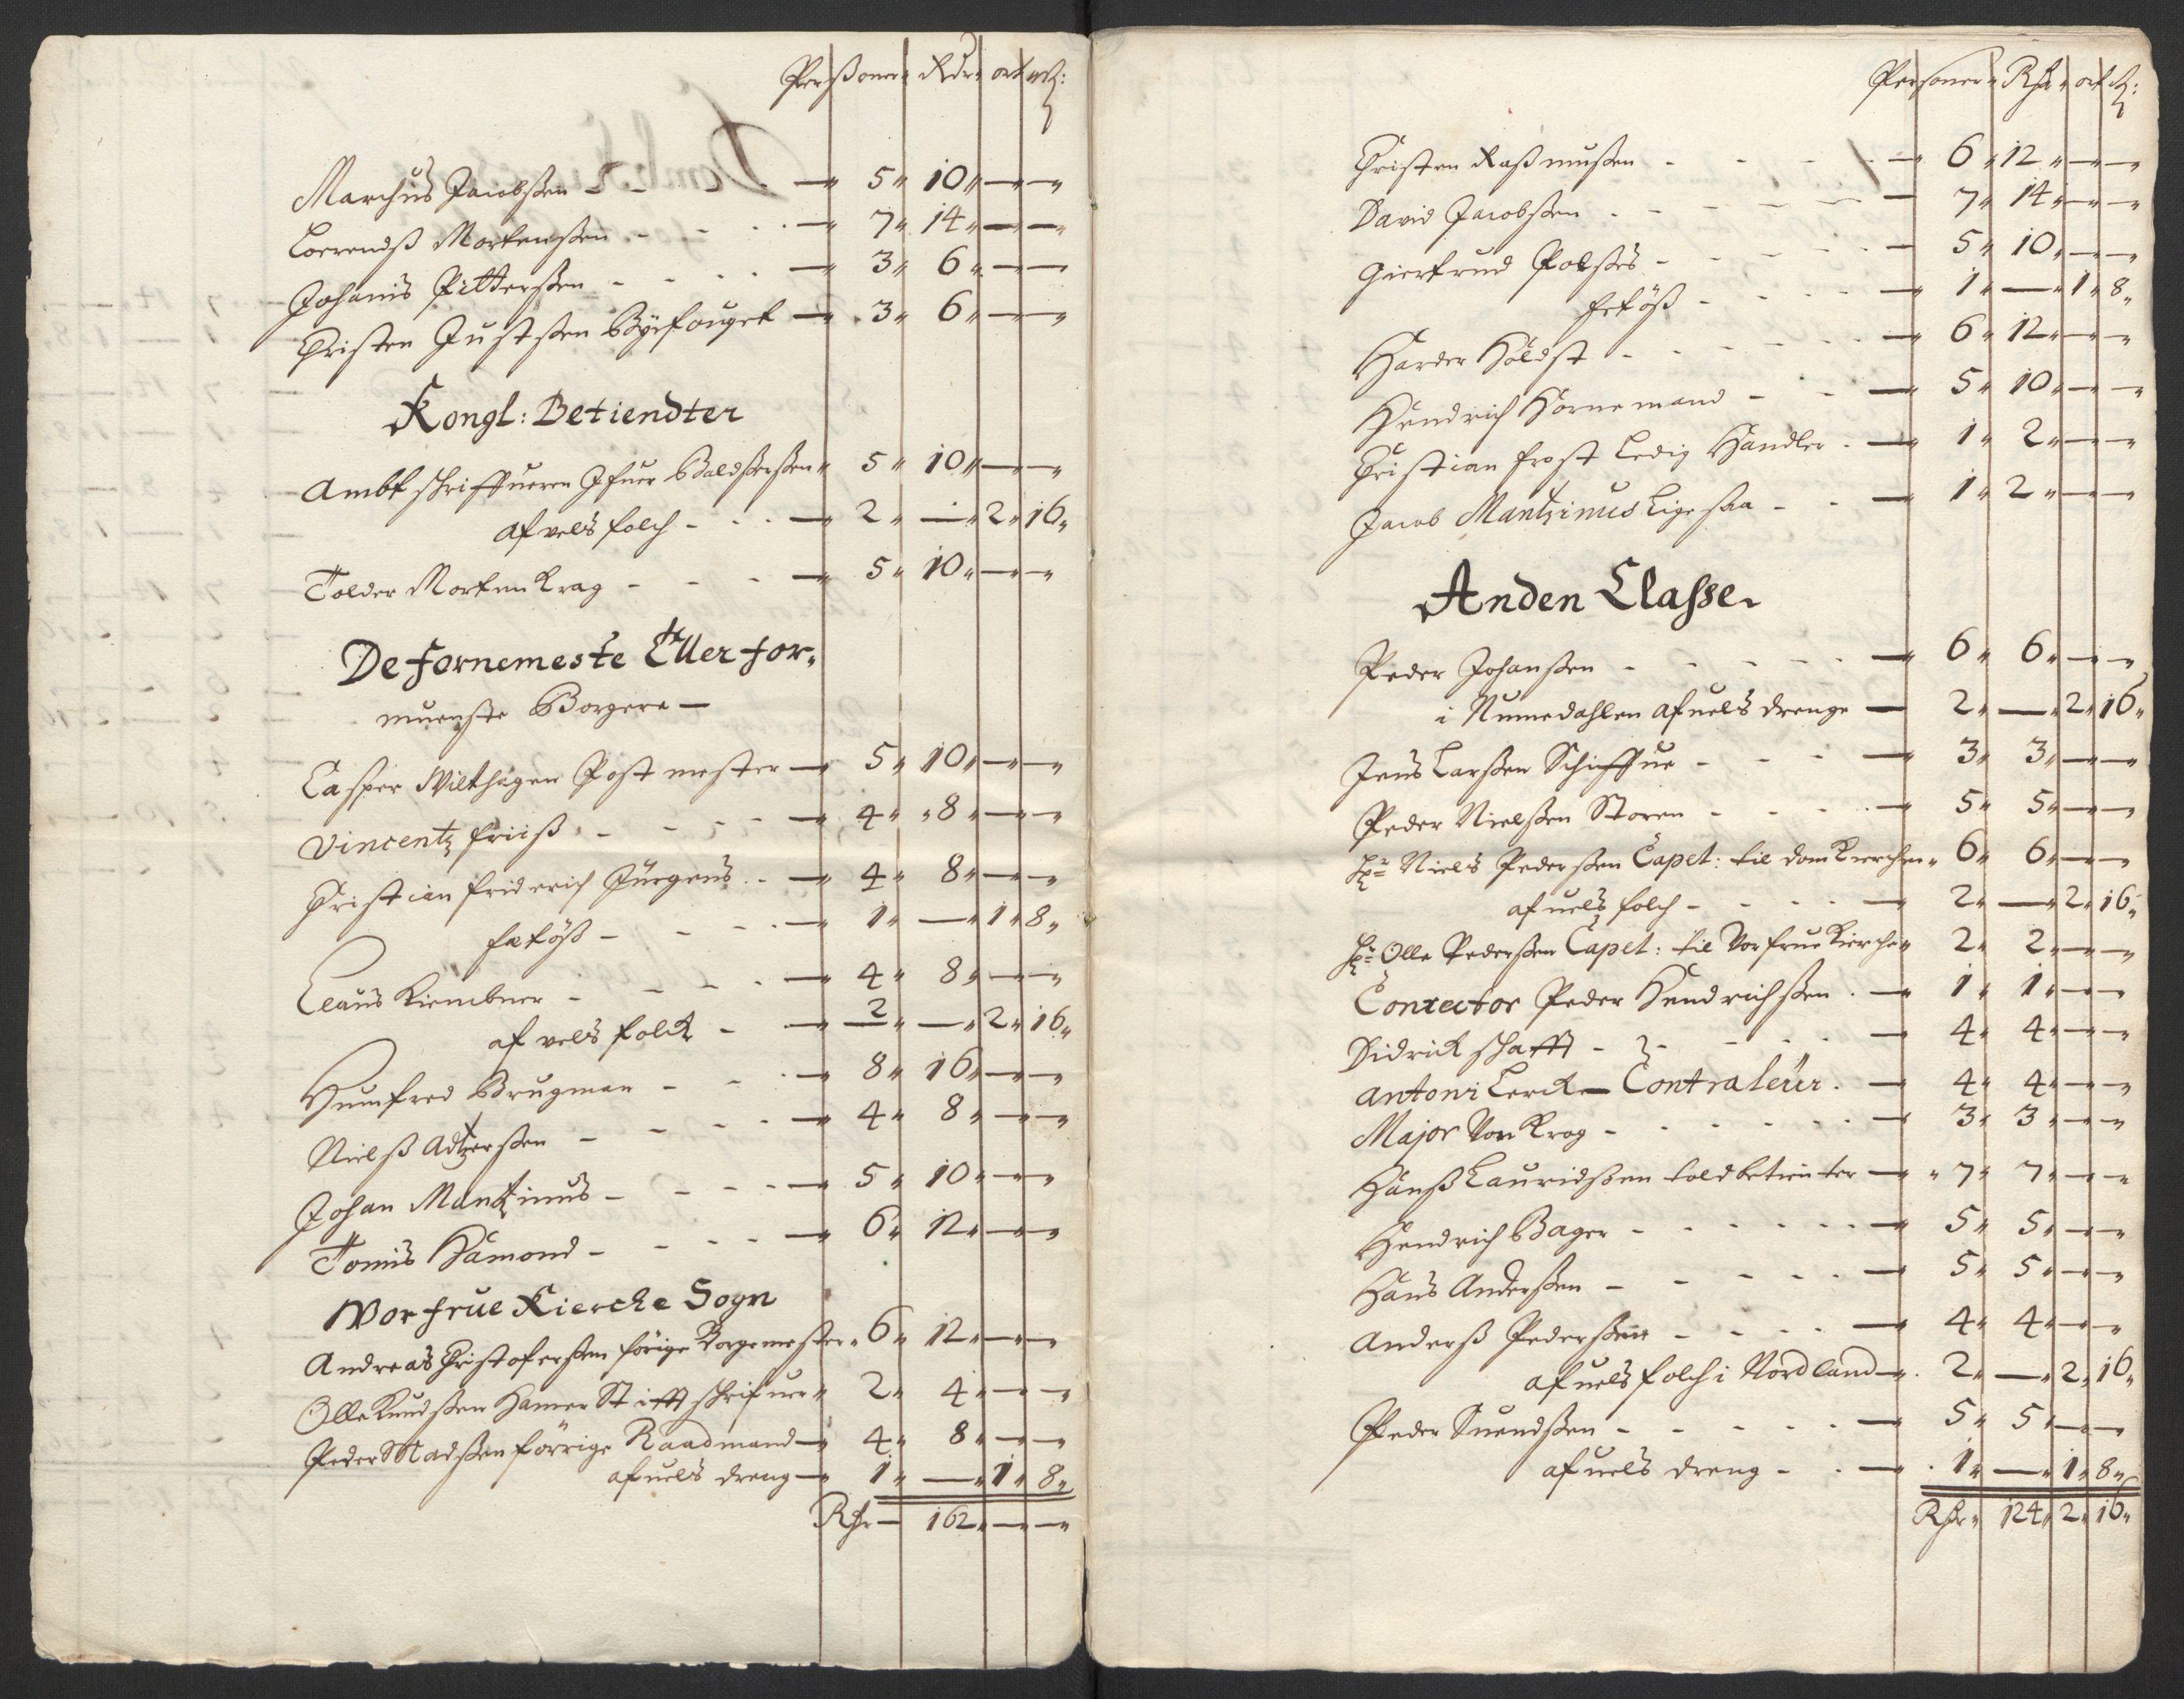 Perßoner Rdr ort ß:
Marchus Jacobßen - - — 5 10 — —
Loerendß Mortenßen - - — 7 14 — —
Johanis Pitterßen - - — 3 6 — —
Christen Justßen Byefouget — 3 6 — —
Kongl: Betiendter
Ambtschriffueren Ifuer Baldßerßen 5 10 — —
afvels folch - - — 2 — 2 16
Tolder Morten Krag - - — 5 10 — —
De fornemeste Eller for-
muenste Borgere —
Casper Wilthagen Postmester — 5 10 — —
Vincentz friiß - - — 4 8 — —
Cristian friderich Jürgens - — 4 8 — —
fetöß - - — 1 — 1 8
Claus Kiembner - - — 4 8 — —
af vels folck - — 2 — 2 16
Humfred Brugman - - — 8 16 — —
Nielß Adtzerßen - - — 4 8 — —
Johan Mantzinus - - — 5 10 — —
Tomis Hamond - - — 6 12 — —
Wor frue Kiercke Sogn
Andreas Cristoferßen förige Borgemester 6 12 — —
Olle Knudßen Hamer Stifft schrifuer 2 4 — —
Peder Madßen förrige Raadmand — 4 8 — —
afuels dreng — 1 — 1 8
Rdr — 162 — —
Personer Rdr ort ß:
Christen Raßmußen - - — 6 12 — —
David Jacobßen - - — 7 14 — —
Giertrud Polßes - - — 5 10 — —
fetöß - - — 1 — 1 8
Harder Holdst - - — 6 12 — —
Hendrich Hornemand - - — 5 10 — —
Cristian frost Ledig Handler - — 1 2 — —
Jacob Mantzinus Ligesaa - - — 1 2 — —
Anden Classe
Peder Johanßen - - — 6 6 — —
i Numedahlen afuels drenge — 2 — 2 16
Jens Larßen Schiffue - - — 3 3 — —
Peder Nielßen Storen - - — 5 5 — —
Hr Niels Pederßen Capel: til domkierchen 6 6 — —
afuels folch - - — 2 — 2 16
Hr Olle Pederßen Capel: til Vor frue Kierche 2 2 — —
Conrector Peder Hendrichßen - — 1 1 — —
Didrick schafft - - — 4 4 — —
Antoni Lerck — Contraleur - — 4 4 — —
Major Von Krog - - — 3 3 — —
Hanß Lauridßen toldbetienter — 7 7 — —
Hendrich Bager - - — 5 5 — —
Hans Anderßen - - — 5 5 — —
Anderß Pederßen - - — 4 4 — —
afuels folch i Nordland — 2 — 2 16
Peder Suendßen - - — 5 5 — —
afuels dreng - - — 1 — 1 8
Rdr 124 2 16